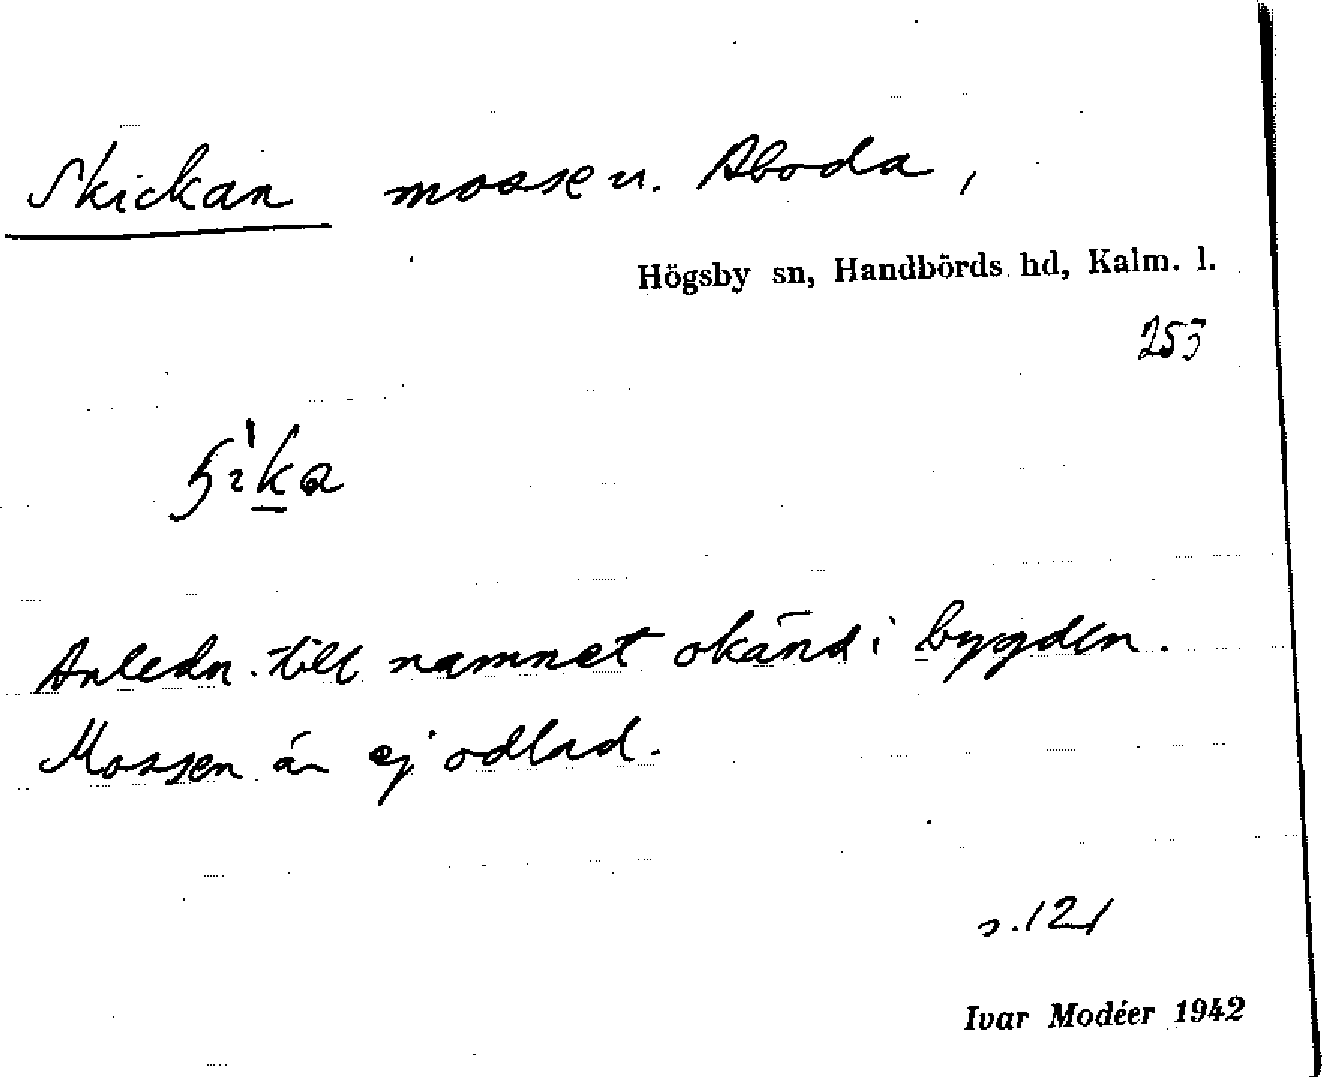 Skickan mosse u. Aboda,
Högsby sn, Handbörds hd, Kalm. l.
253
Anledn. till namnet okänd i bygden.
Mossen är ej odlad.
s. 121
Ivar Modéer 1942